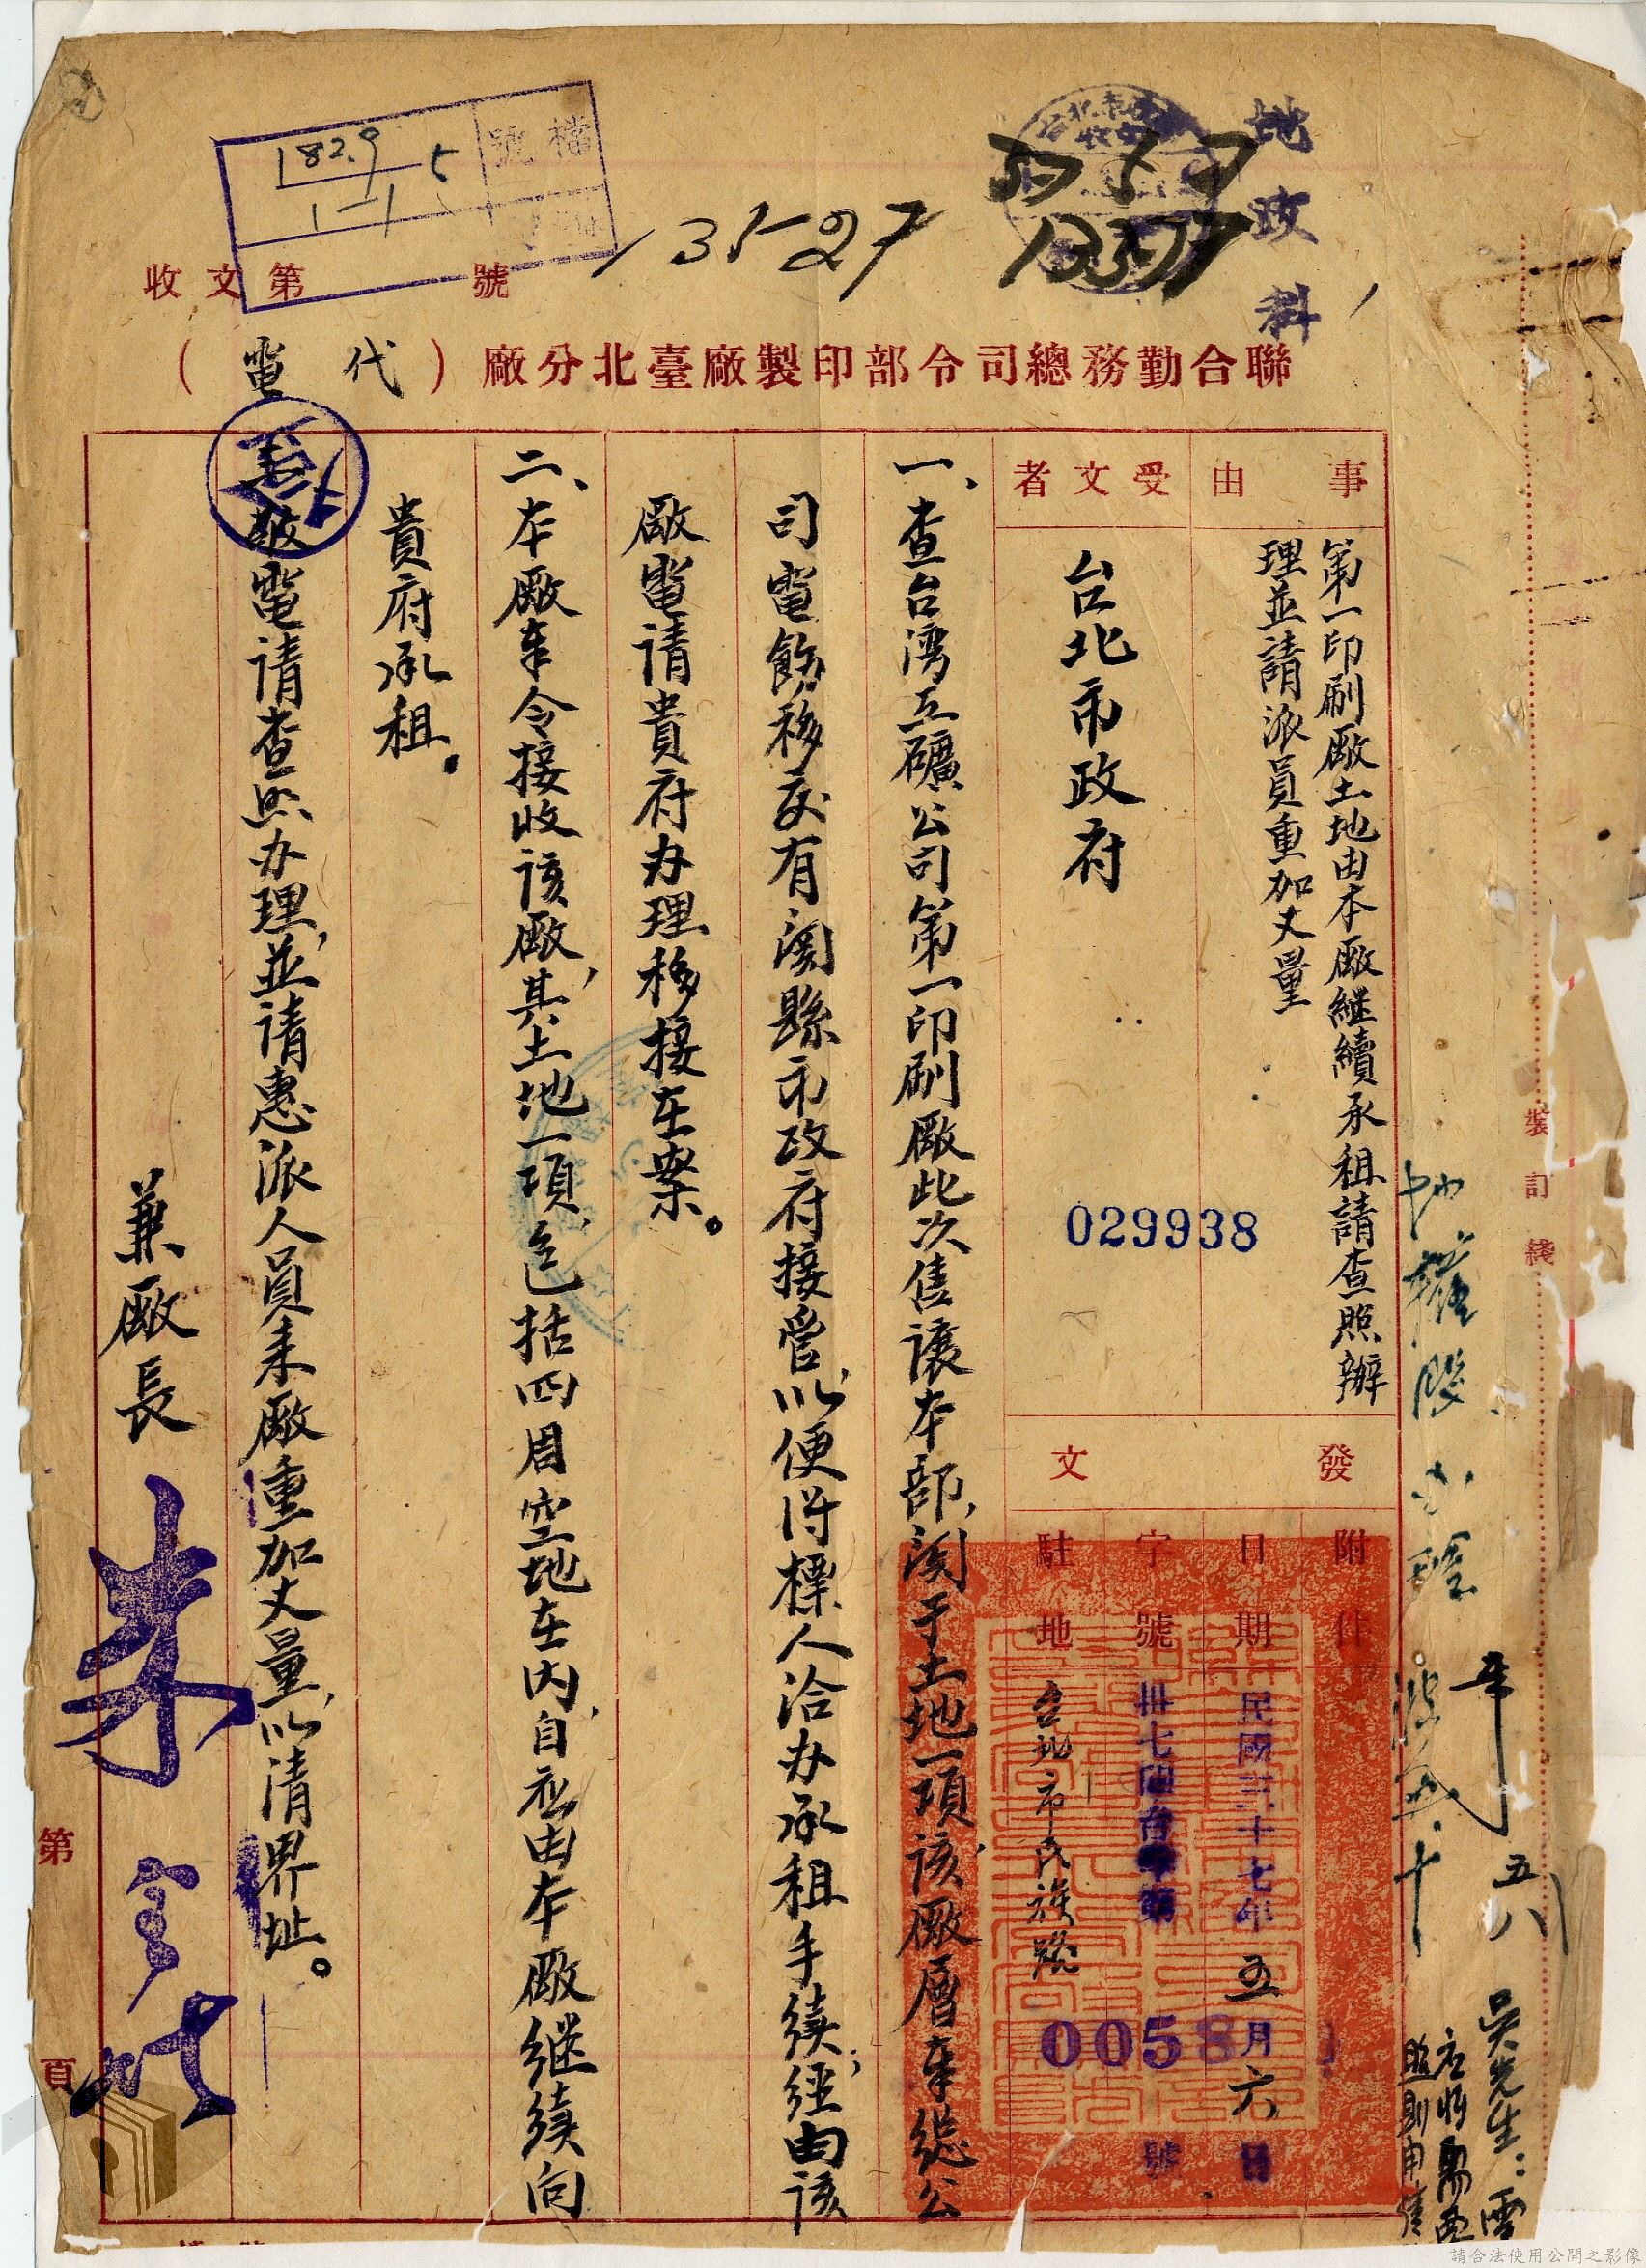 地政科
檔號
182.9
5
1-1
收文第 號
13527
聯合勤務總司令部印製廠臺北分廠（代電）
事由
第一印刷廠土地由本廠継續承租請查照辦
理並請派員重加丈量
受文者
台北市政府
029938
發文
附件
日期
民國三十七年五月六日
字號
0058
號
駐地
台北市民族路
一、查台湾工礦公司第一印刷廠此次售讓本部，関于土地一項，該廠層奉總公
司電飭移交有関縣市政府接管，以便得標人洽办承租手续，經由該
廠電请貴府办理移接在案。
二、本廠奉令接收該廠，其土地一項，包括四周空地在内，自应由本廠继续向
貴府承租。
電请查照办理，並请惠派人員来廠重加丈量，以清界址。
兼廠長
朱
第 頁
裝訂綫
五八
吳先生：
請合法使用公開之影像